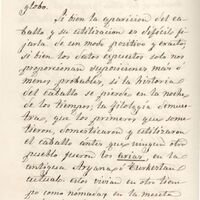 globo.
Si bien la aparicion del ca-
ballo y su utilizacion es dificil fi-
jarla de un modo positivo y exacto,
si bien los datos expuestos solo nos
proporcionan suposiciones mas ó
menos probables, si la historia
del caballo se pierde en la noche
de los tiempos, la filología demues-
tra, que los primeros que some-
tieron, domesticaron y utilizaron
el caballo antes que ningun otro
pueblo fueron los arias, en la
antigua Aryana, ó Turkestan
actual: estos vivian en otro tiem-
po como nómadas en la meseta